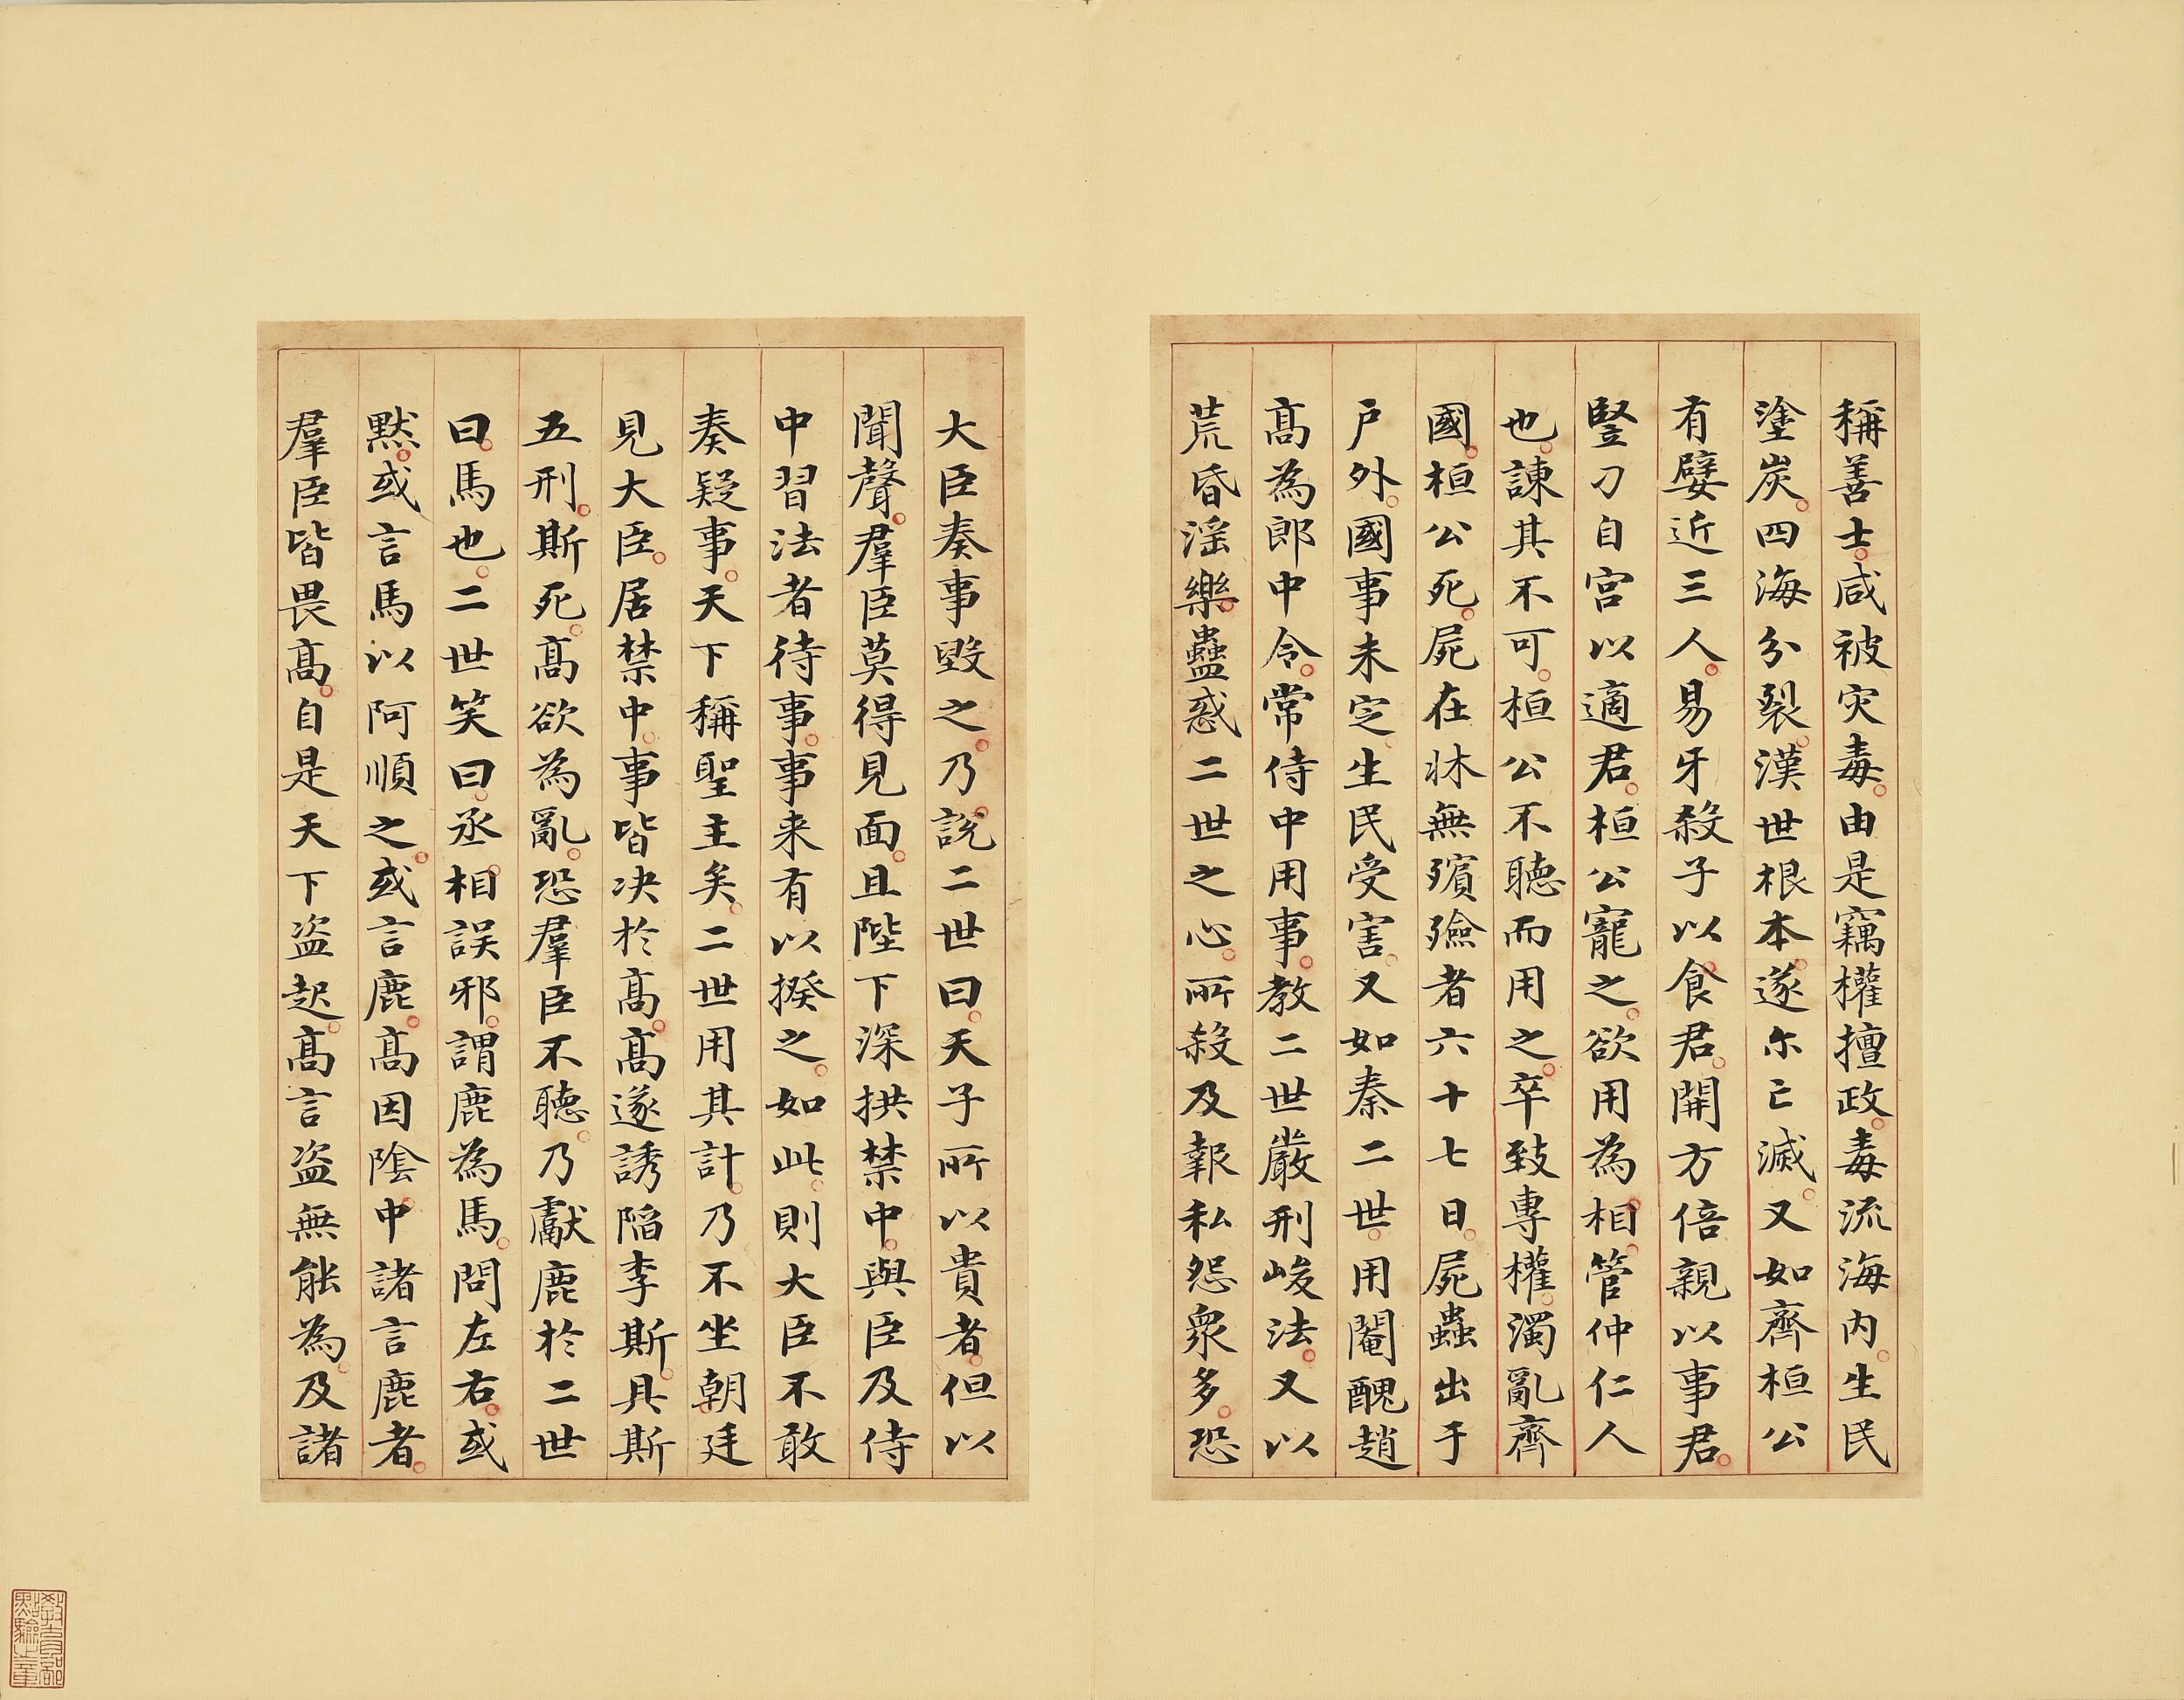 稱善士咸被灾毒由是竊權擅政毒流海内生民
塗炭四海分裂漢世根本遂尓亡滅又如齊桓公
有嬖近三人易牙殺子以食君開方倍親以事君
豎刀自宮以適君桓公寵之欲用為相管仲仁人
也諫其不可桓公不聽而用之卒致專權濁亂齊
國桓公死屍在牀無殯殮者六十七日屍蟲出于
戶外國事未定生民受害又如秦二世用閹醜趙
高為郎中令常侍中用事教二世嚴刑峻法又以
荒昏滛樂蠱惑二世之心所殺及報私怨衆多恐
大臣奏事毀之乃説二世曰天子所以貴者但以
聞聲羣臣莫得見面且陛下深拱禁中與臣及侍
中習法者待事事来有以揆之如此則大臣不敢
奏疑事天下稱聖主矣二世用其計乃不坐朝廷
見大臣居禁中事皆决於高高遂誘陷李斯具斯
五刑斯死高欲為亂恐羣臣不聽乃獻鹿於二世
曰馬也二世笑曰丞相誤邪謂鹿為馬問左右或
黙或言馬以阿順之或言鹿高因陰中諸言鹿者
羣臣皆畏高自是天下盗起高言盗無能為及諸
教育部
點驗之章